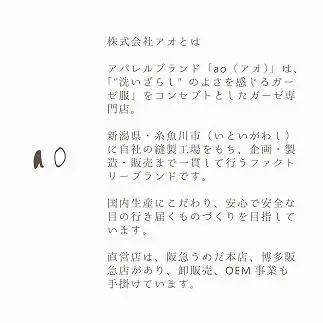 株式会社アオとは
アパレルブランド「ao（アオ）」は、
「"洗いざらし" のよさを感じるガー
ゼ服」をコンセプトとしたガーゼ専
門店。
新潟県・糸魚川市（いといがわし）
に自社の縫製工場をもち、企画・製
造・販売まで一貫して行うファクト
リーブランドです。
ao
国内生産にこだわり、安心で安全な
目の行き届くものづくりを目指して
います。
直営店は、阪急うめだ本店、博多阪
急店があり、卸販売、OEM 事業も
手掛けています。